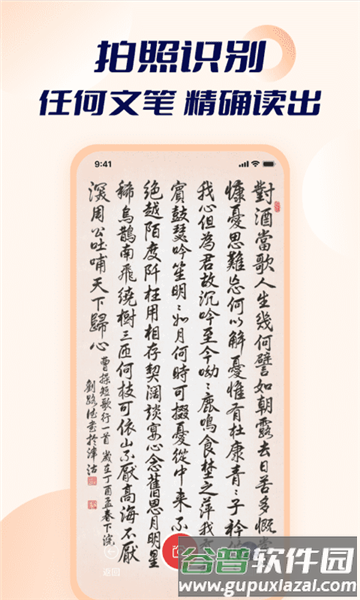 拍照识别
任何文笔 精确读出
9:41
對酒當歌人生幾何譬如朝露去日苦多慨
慷憂思難忘何以解憂惟有杜康青〻子衿
我心但為君故沉吟至今呦〻鹿鳴食埜之苹我
賓鼓瑟吹笙明〻如月何時可掇憂從中來不
絕越陌度阡枉用相存契闊談宴心念舊恩月明星
稀烏鵲南飛繞樹三匝何枝可依山不厭高海不厭
深周公吐哺天下歸心
曹操短歌行一首 歲在丁酉孟春下浣
書於津沽
谷普软件园
www.gupuxlazal.com